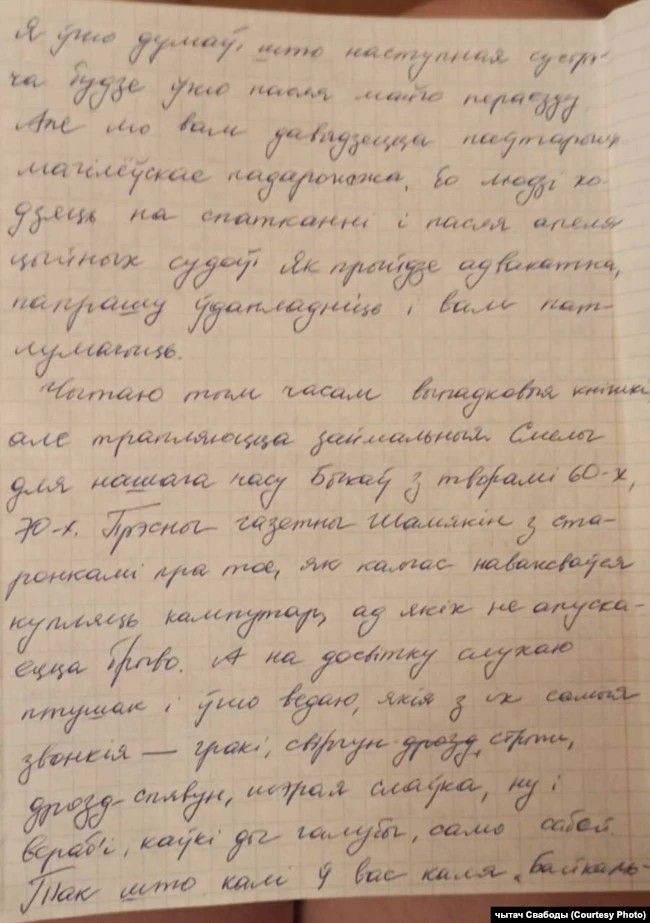 Я ўжо думаў, што наступная сустрэ-
ча будзе ўжо пасля майго пераезду.
Але мо вам давядзецца паўтарыць
магілёўскае падарожжа, бо людзі хо-
дзяць на спатканні і пасля апеля-
цыйных судоў. Як прыйдзе адвакатка,
папрашу ўдакладніць і вам пат-
лумачыць.
Чытаю тым часам выпадковыя кніжкі,
але трапляюцца займальныя. Смелы
для нашага часу Быкаў з творамі 60-х,
70-х. Прэсны газетны Шамякін з ста-
ронкамі пра тое, як калгас наважваўся
купляць кампутар, ад якіх не апуска-
ецца брыво. А на досвітку слухаю
птушак і ўжо ведаю, якія з іх самыя
звонкія — гракі, свіргун-дрозд, стрыжы,
дрозд-спявун, шэрая слаўка, ну і
вераб'і, каўкі ды галубы, само сабой.
Так што калі ў вас каля „Байкаль-
чытач Свабоды (Courtesy Photo)